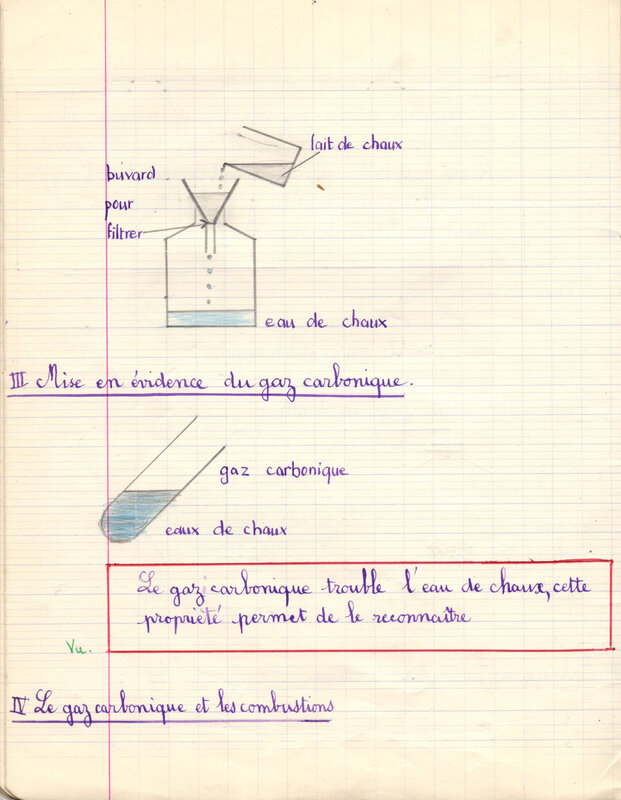 lait de chaux
buvard
pour
filtrer
eau de chaux
III Mise en évidence du gaz carbonique.
gaz carbonique
eaux de chaux
Le gaz carbonique trouble l'eau de chaux, cette
propriété permet de le reconnaître
Vu.
IV Le gaz carbonique et les combustions